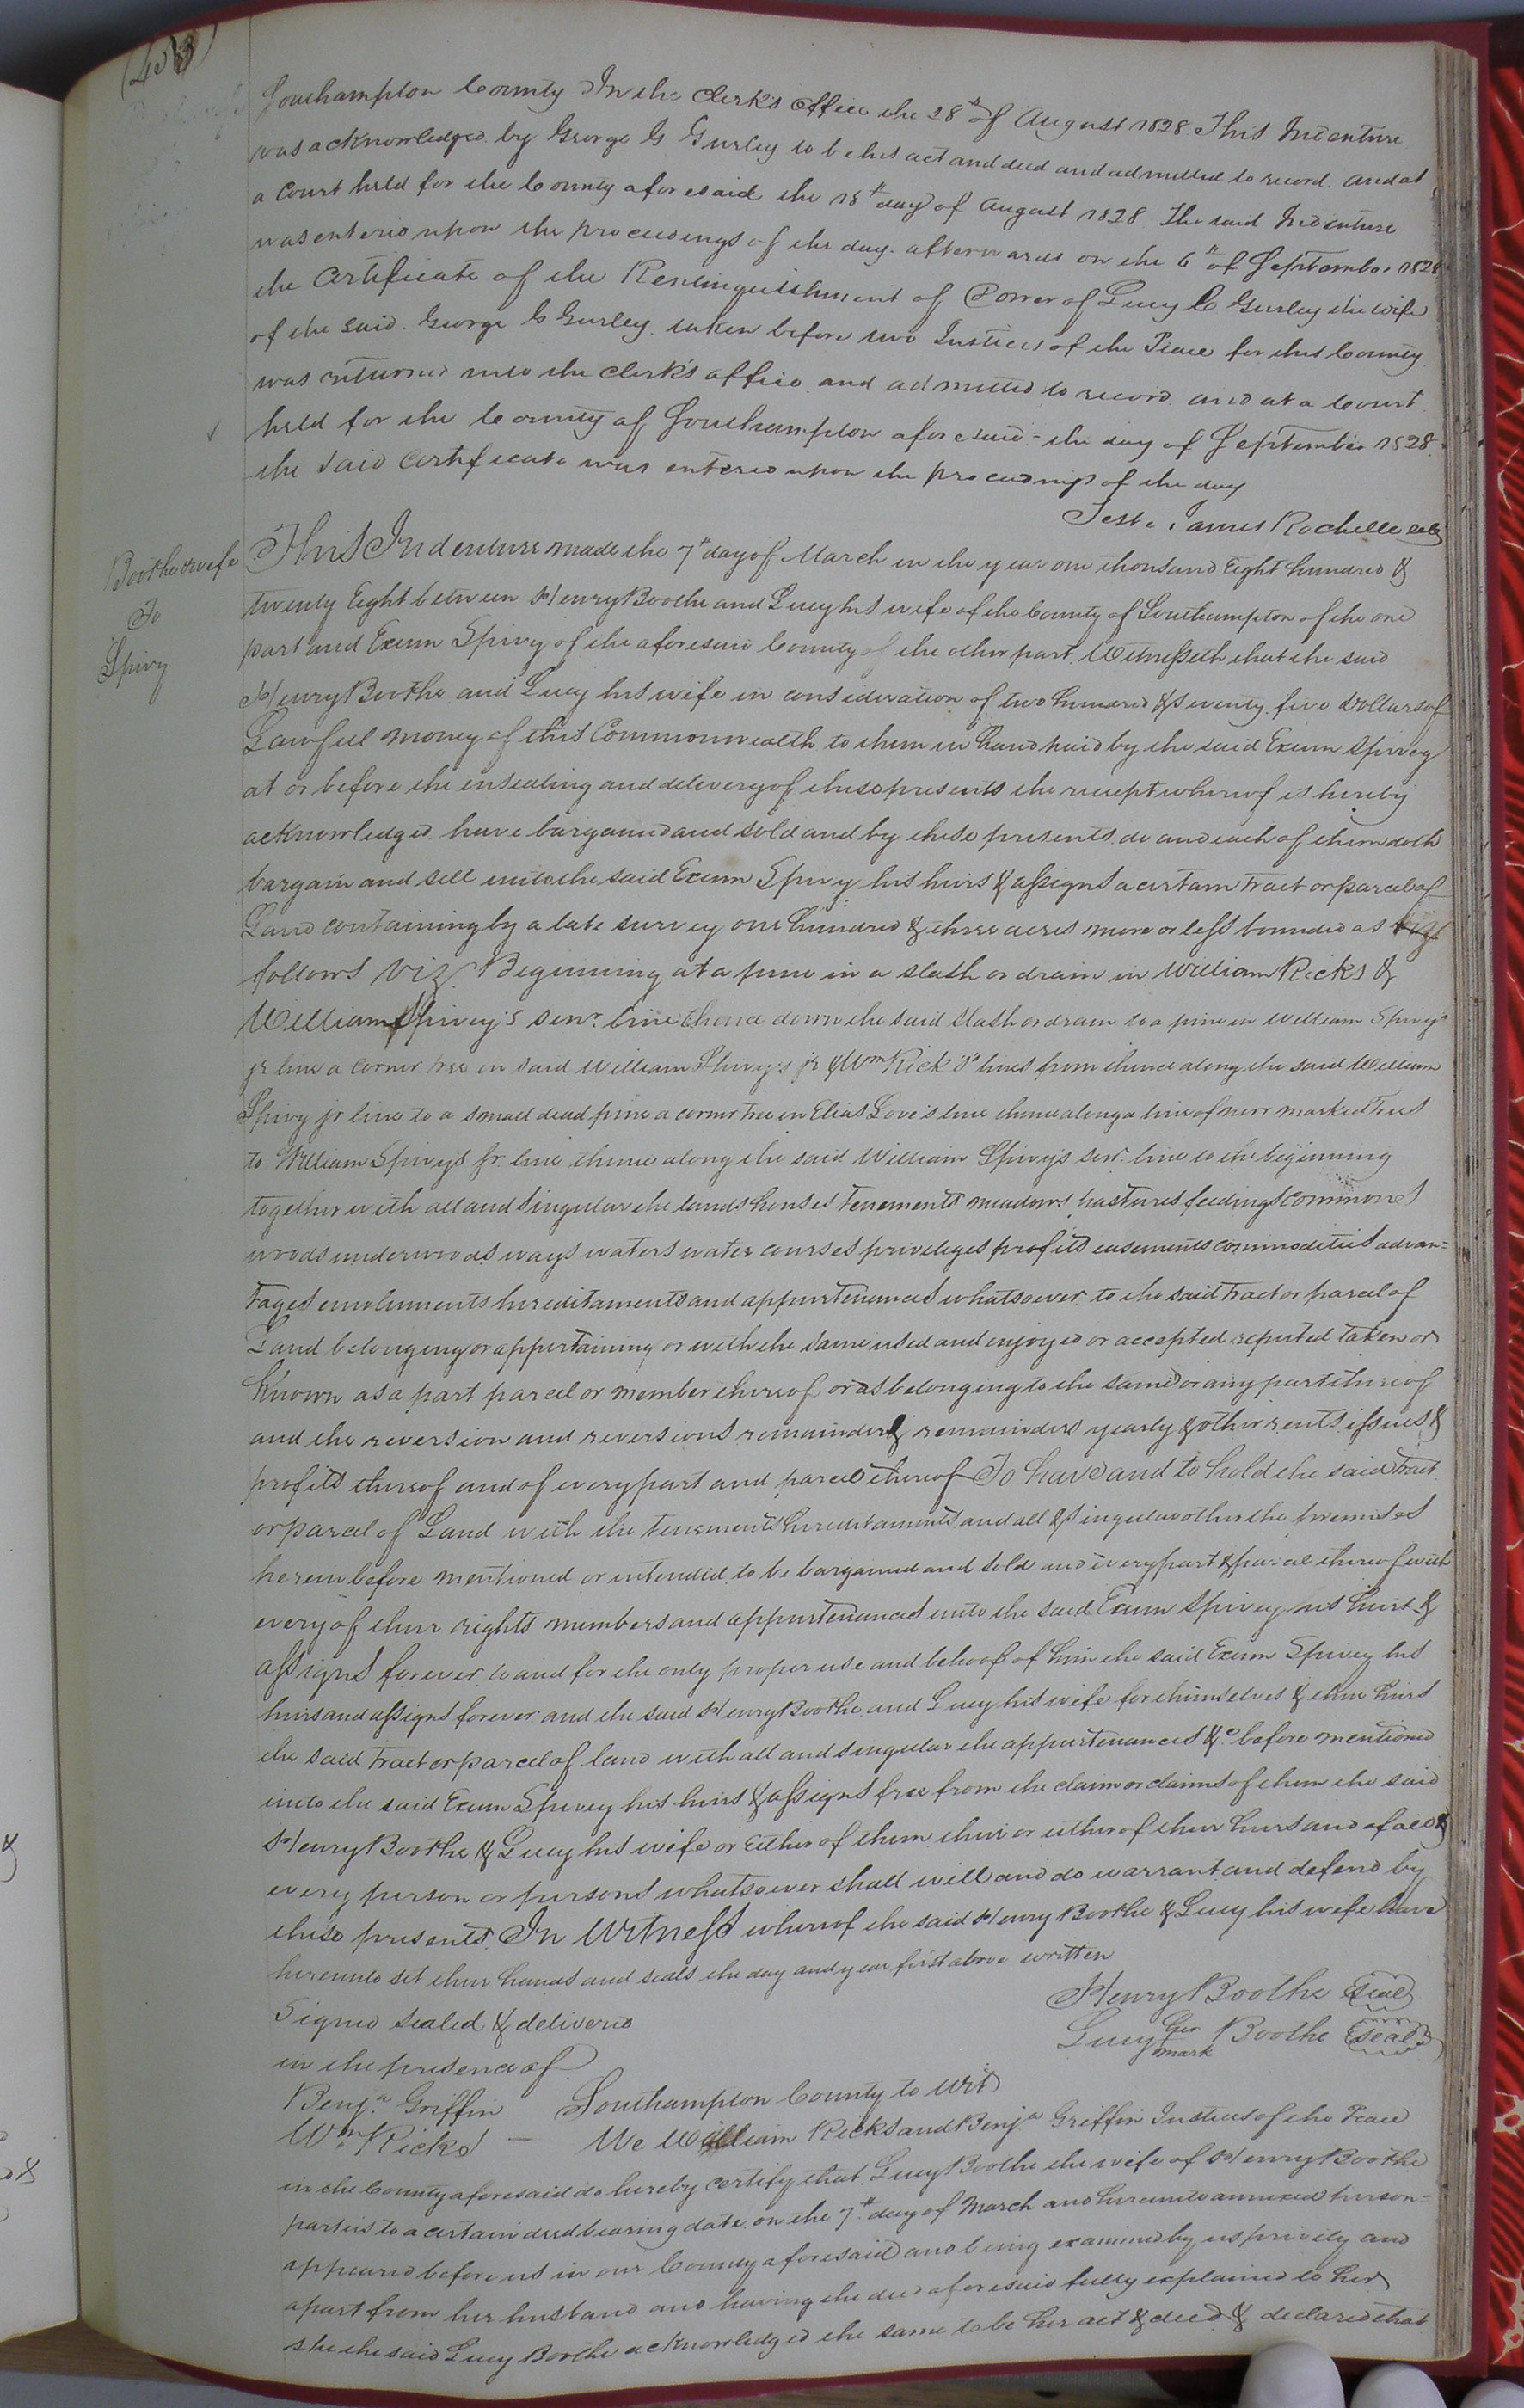 Southampton County In the Clerk's Office the 28th of August 1828 This Indenture
was acknowledged by George G Gurley to be his act and deed and admitted to record. and at
a Court held for the County aforesaid the 18th day of August 1828 The said Indenture
was entered upon the proceedings of the day. afterwards on the 6th of September 1828
the Certificate of the Relinquishment of Power of Lucy C Gurley the wife
of the said George G Gurley taken before two Justices of the Peace for this County
was returned into the clerk's office and admitted to record and at a Court
held for the County of Southampton aforesaid the day of September 1828.
the said Certificate was entered upon the proceedings of the day
Teste James Rochelle
Boothe & wife
To
Spivy
This Indenture made the 7th day of March in the year one thousand Eight hundred &
twenty Eight between Henry Boothe and Lucy his wife of the County of Southampton of the one
part and Exum Spivey of the aforesaid County of the other part. Witnesseth that the said
Henry Boothe and Lucy his wife in consideration of two hundred & seventy five Dollars of
Lawful money of this Commonwealth to them in hand paid by the said Exum Spivey
at or before the ensealing and delivery of these presents the receipt whereof is hereby
acknowledged. have bargained and sold and by these presents do and each of them doth
bargain and sell unto the said Exum Spivy his heirs & assigns a certain tract or parcel of
Land containing by a late survey one hundred & three acres more or less bounded as
follows Viz. Beginning at a pine in a slash or drain in William Ricks &
William Spivey's senr. line thence down the said slash or drain to a pine in William Spivy's
jr line a corner tree in said William Spivy's jr & Wm Rick's lines from thence along the said William
Spivy jr line to a small dead pine a corner tree in Elias Love's line thence along a line of new marked trees
to William Spivy's Jr. line thence along the said William Spivy's senr. line to the beginning
together with all and singular the lands houses tenements meadows pastures feedings commones
woods underwoods ways waters water courses priveleges profits easements commodities advan=
tages emoluments hereditaments and appurtenances whatsoever to the said tract or parcel of
Land belonging or appertaining or with the same used and enjoyed or accepted reputed taken or
known as a part parcel or member thereof or as belonging to the same or any part thereof
and the reversion and reversions remainder & remainders yearly & other rents issues &
profits thereof and of every part and parcel thereof To have and to hold the said tract
or parcel of Land with the tenements hereditaments and all & singular other the premises
herein before mentioned or intended to be bargained and sold and every part & parcel thereof with
every of their rights members and appurtenances unto the said Exum Spivey his heirs &
assigns forever to and for the only proper use and behoof of him the said Exum Spivey his
heirs and assigns forever and the said Henry Boothe and Lucy his wife for themselves & their heirs
the said tract or parcel of land with all and singular the appurtenances &c before mentioned
unto the said Exum Spivey his heirs & assigns free from the claim or claims of them the said
Henry Boothe & Lucy his wife or either of them their or either of their heirs and of all &
every person or persons whatsoever shall will and do warrant and defend by
these presents. In Witness whereof the said Henry Boothe & Lucy his wife have
hereunto set their hands and seals the day and year first above written
Signed sealed & delivered
in the presence of
Benja Griffin
Wm Ricks
Henry Boothe Seal
Lucy her mark Boothe Seal
Southampton County to wit
We William Ricks and Benja Griffin Justices of the Peace
in the County aforesaid do hereby certify that Lucy Boothe the wife of Henry Boothe
parties to a certain deed bearing date on the 7th day of March and hereunto annexed person=
appeared before us in our County aforesaid and being examined by us privily and
apart from her husband and having the deed aforesaid fully explained to her
she the said Lucy Boothe acknowledged the same to be her act & deed & declared that